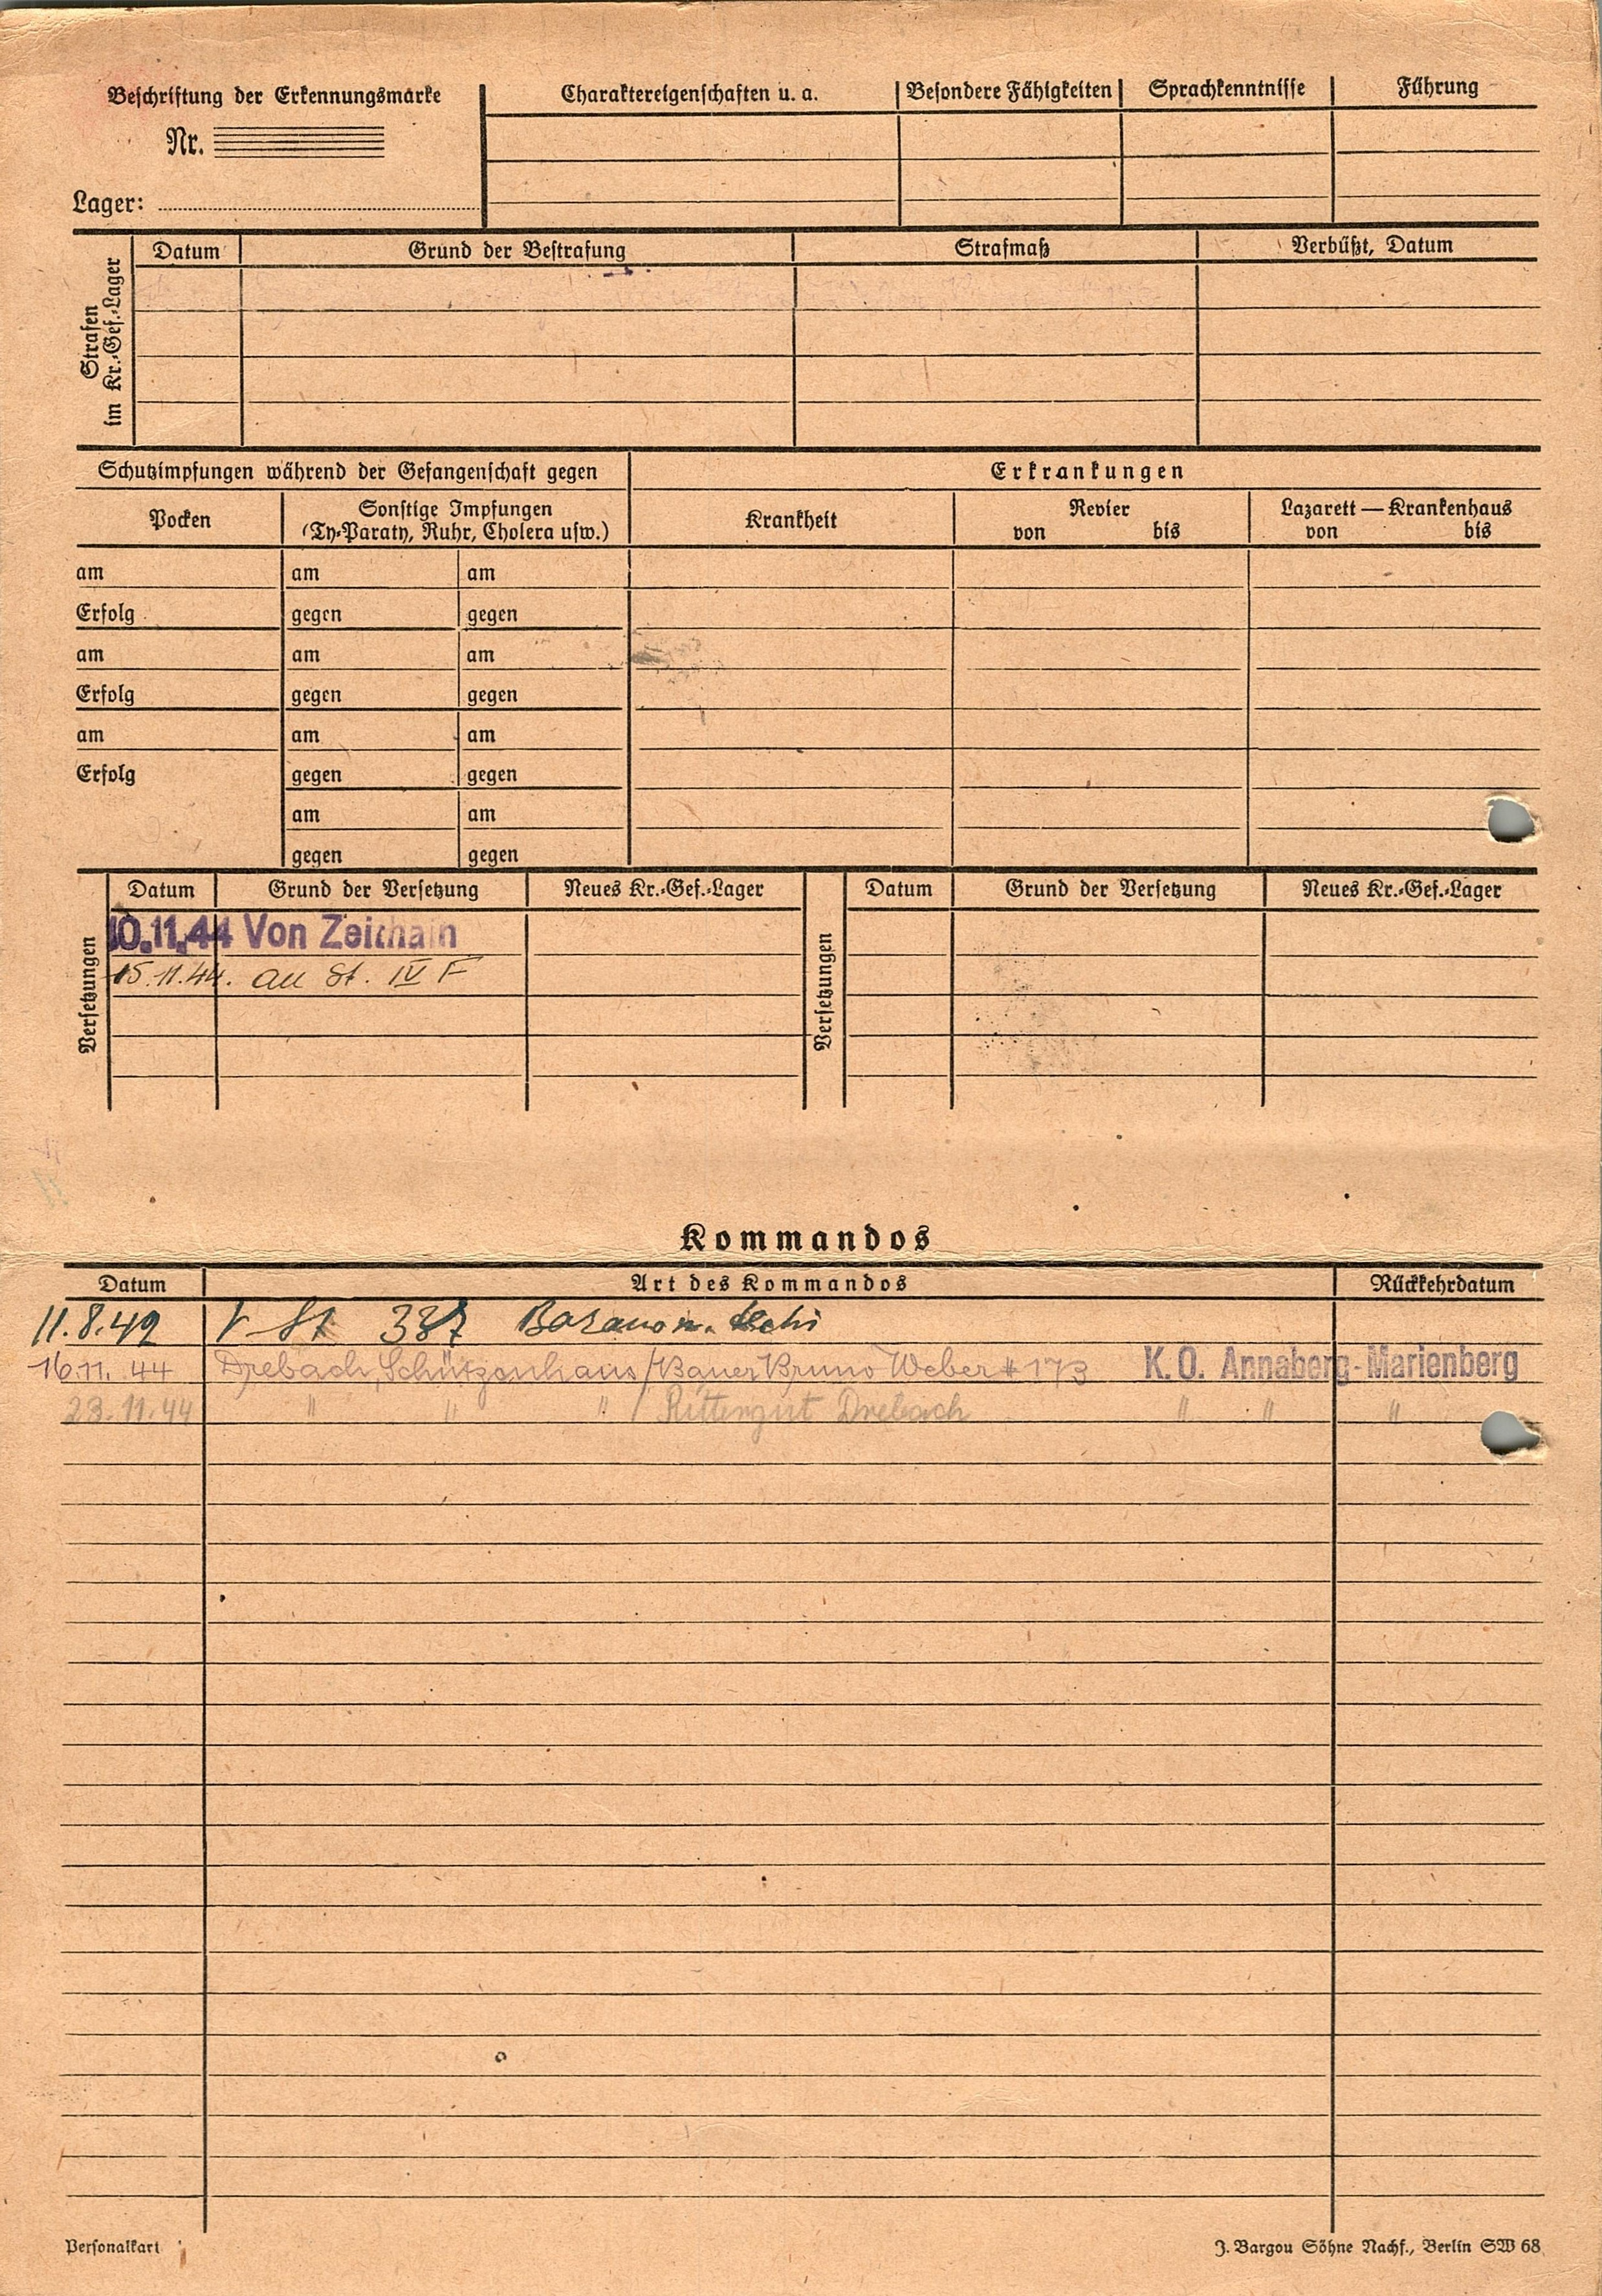 Beschriftung der Erkennungsmarke
Nr.
Lager:
Charaktereigenschaften u. a. Besondere Fähigkeiten Sprachkenntnisse Führung
Strafen im Kr.-Gef.-Lager
Datum Grund der Bestrafung Strafmaß Verbüßt, Datum
Schutzimpfungen während der Gefangenschaft gegen Erkrankungen
Pocken Sonstige Impfungen (Ty-Paraty, Ruhr, Cholera usw.) Krankheit Revier von bis Lazarett — Krankenhaus von bis
am am am
Erfolg gegen gegen
am am am
Erfolg gegen gegen
am am am
Erfolg gegen gegen
am am
gegen gegen
Versetzungen Datum Grund der Versetzung Neues Kr.-Gef.-Lager Versetzungen Datum Grund der Versetzung Neues Kr.-Gef.-Lager
10.11.44 Von Zeithain
15.11.44. an St. IV F
Kommandos
Datum Art des Kommandos Rückkehrdatum
11.8.42 V St 337
16.11.44 Drebach, Schützenhaus/Bauer Bruno Weber # 173 K.O. Annaberg-Marienberg
23.11.44 " " " / Rittergut Drebach " " "
Personalkart
J. Bargou Söhne Nachf., Berlin SW 68